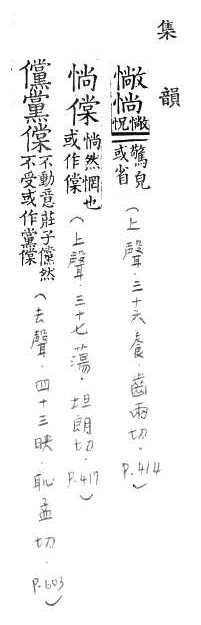 集韻
惝怳驚皃或省(上聲·三十六養·齒兩切·P.414)
惝惝然惘也或作(上聲·三十七蕩·坦朗切·P.417)
儻黨不動意莊子儻然不受或作黨(去聲·四十三映·恥孟切·P.603)